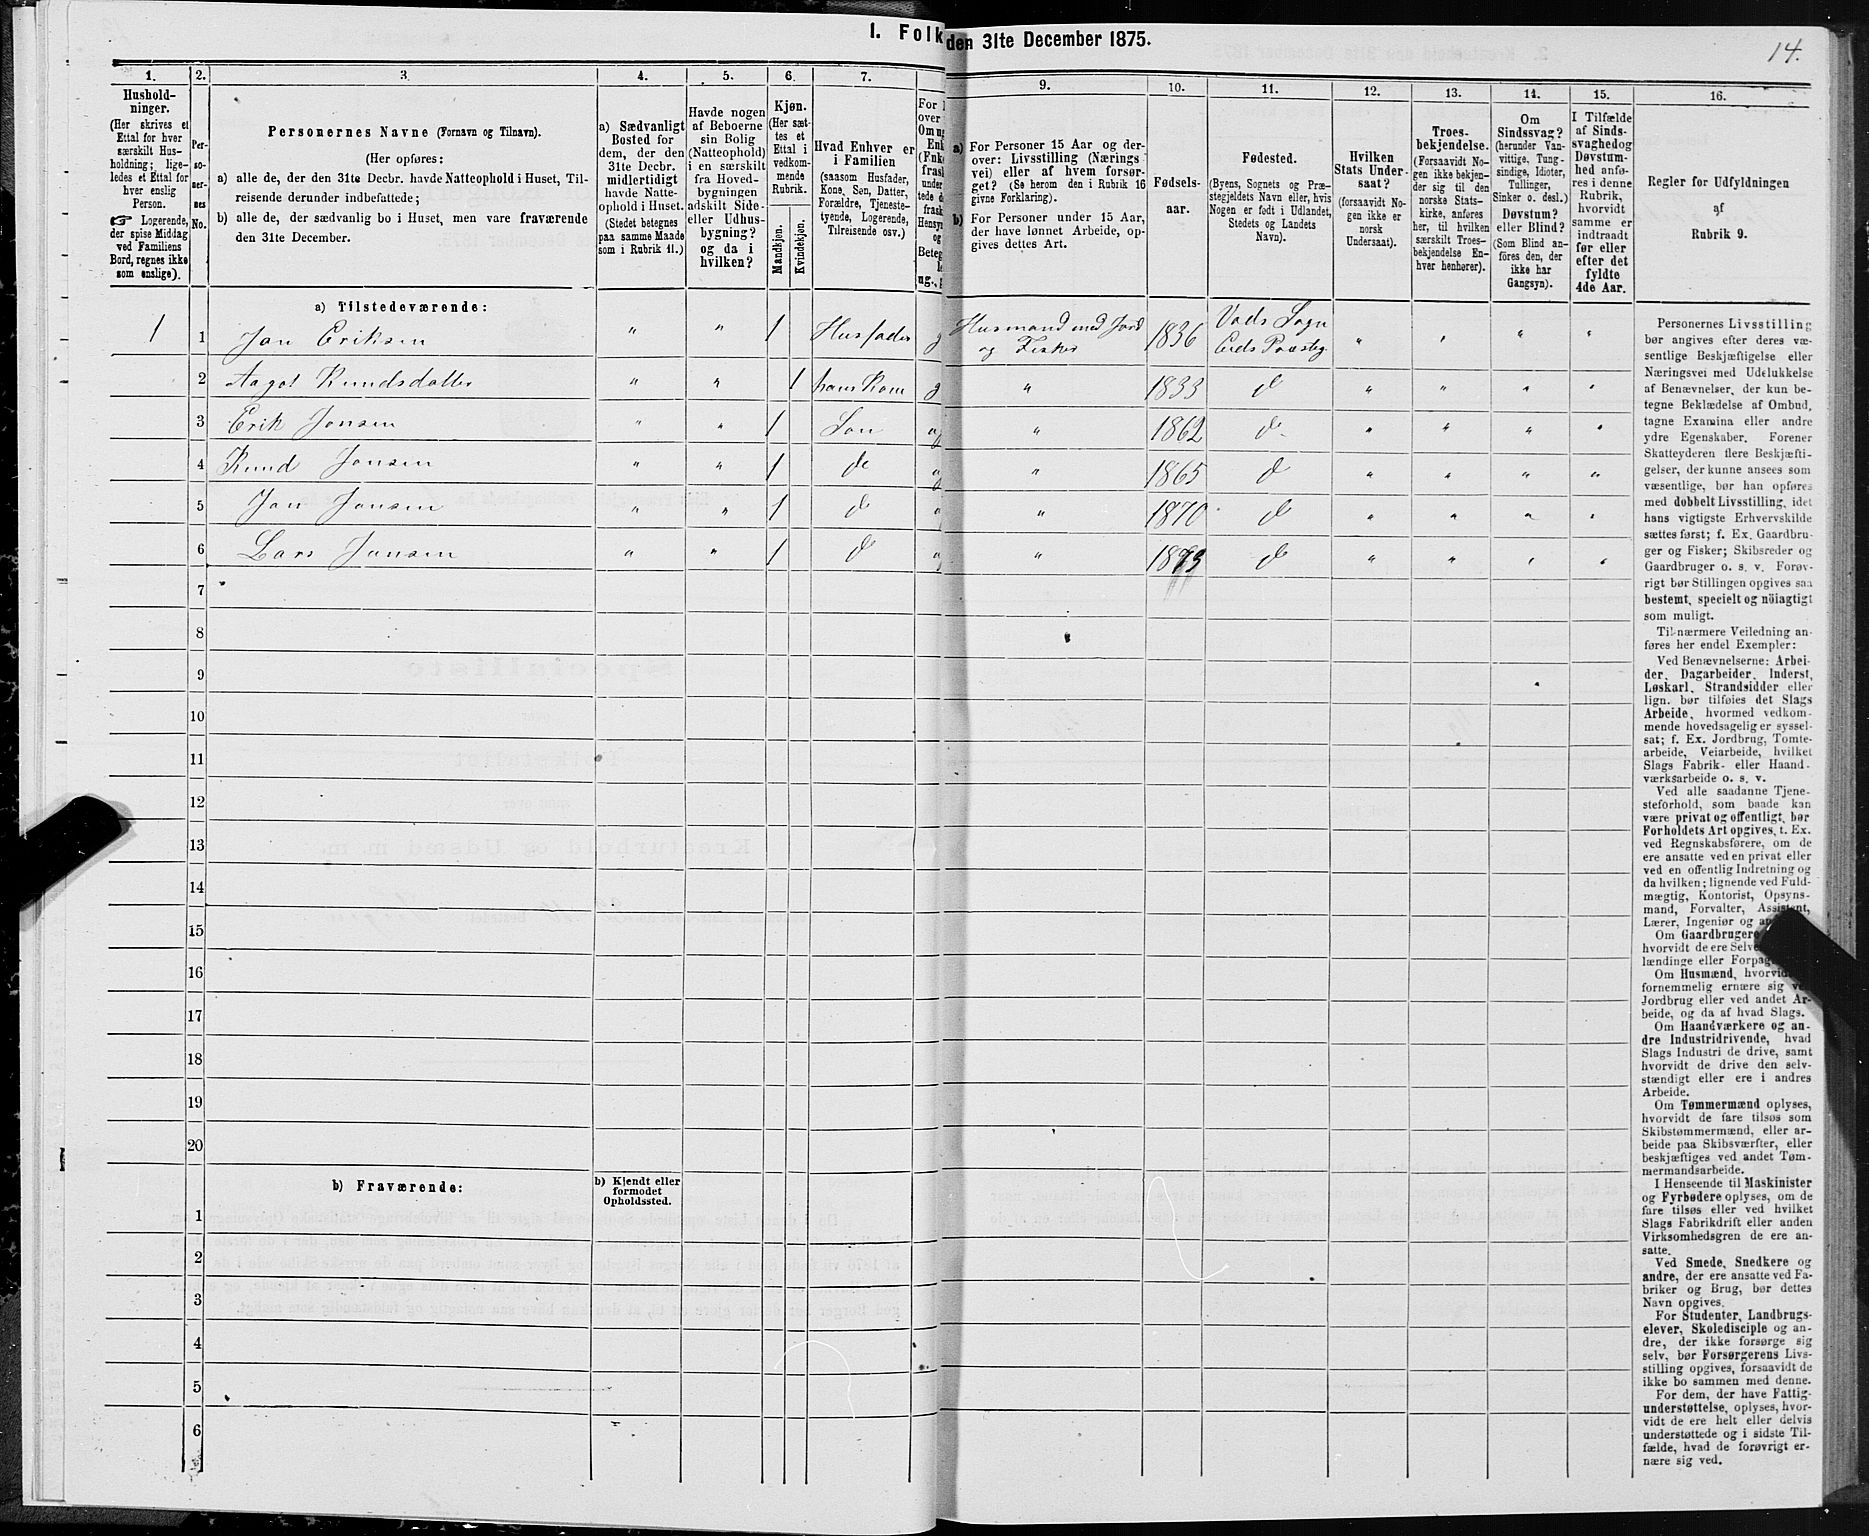 1. Folk
den 31te December 1875.
14.
1.
2.
3.
4.
5.
6.
7.
9.
10.
11.
12.
13.
14.
15.
16.
Hushold-
ninger.
(Her skrives et
Ettal for hver
særskilt Hus-
holdning; lige-
ledes et Ettal for
hver enslig
Person.
☞ Logerende,
der spise Middag
ved Familiens
Bord, regnes ikke
som enslige).
Per-
so-
ner-
nes
No.
Personernes Navne (Fornavn og Tilnavn).
(Her opføres:
a) alle de, der den 31te Decbr. havde Natteophold i Huset, Til-
reisende derunder indbefattede;
b) alle de, der sædvanlig bo i Huset, men vare fraværende
den 31te December.
a) Sædvanligt
Bosted for
dem, der den
31te Decbr.
midlertidigt
havde Natte-
ophold i Huset.
(Stedet betegnes
paa samme Maade
som i Rubrik 11.)
Havde nogen
af Beboerne
sin Bolig
(Natteophold)
i en særskilt
fra Hoved-
bygningen
adskilt Side-
eller Udhus-
bygning?
og da i
hvilken?
Kjøn.
(Her sæt-
tes et
Ettal i
vedkom-
mende
Rubrik.
Mandkjøn.
Kvindekjøn.
Hvad Enhver er
i Familien
(saasom Husfader,
Kone, Søn, Datter,
Forældre, Tjeneste-
tyende, Logerende,
Tilreisende osv.)
For
over
Om ug
Enk
(Enke
frask
under
tede
frask
Hensyn
og
Beteg
ug.,
a) For Personer 15 Aar og der-
over: Livsstilling (Nærings-
vei) eller af hvem forsør-
get? (Se herom den i Rubrik 16
givne Forklaring).
b) For Personer under 15 Aar,
der have lønnet Arbeide, op-
gives dettes Art.
Fødsels-
aar.
Fødested.
(Byens, Sognets og Præ-
stegjeldets Navn eller, hvis
Nogen er født i Udlandet,
Stedets og Landets
Navn).
Hvilken
Stats Under-
saat?
(forsaavidt No-
gen ikke er
norsk
Undersaat).
Troes-
bekjendelse.
(Forsaavidt No-
gen ikke bekjen-
der sig til den
norske Stats-
kirke, anføres
her, til hvilken
særskilt Troes-
bekjendelse En-
hver henhører).
Om
Sindssvag?
(herunder Van-
vittige, Tung-
sindige, Idioter,
Tullinger,
Sinker o. desl.)
Døvstum?
eller Blind?
(Som Blind an-
føres den, der
ikke har
Gangsyn).
I Tilfælde
af Sinds-
svaghed og
Døvstum-
hed anfø-
res i denne
Rubrik,
hvorvidt
samme er
indtraadt
før eller
efter det
fyldte
4de Aar.
Regler for Udfyldningen
af
Rubrik 9.
a) Tilstedeværende:
1 1 Jon Eriksen " " 1 Husfader g Husmand med Jord og Fisker 1836 Vads Sogn Eids Præsteg. " " " "
2 Aagot Knudsdatter " " 1 hans Kone g " 1833 d " " " "
3 Erik Jonsen " " 1 Søn ug " 1862 d " " " "
4 Knud Jonsen " " 1 do ug " 1865 d " " " "
5 Jon Jonsen " " 1 d " 1870 d " " " "
6 Lars Jonsen " " 1 d " 1873 d " " " "
7
8
9
10
11
12
13
14
15
16
17
18
19
20
b) Fraværende:
b) Kjendt eller
formodet
Opholdssted.
1
2
3
4
5
6
Personernes Livsstilling
bør angives efter deres væ-
sentlige Beskjæftigelse eller
Næringsvei med Udelukkelse
af Benævnelser, der kun be-
tegne Beklædelse af Ombud,
tagne Examina eller andre
ydre Egenskaber. Forener
Skatteyderen flere Beskjæfti-
gelser, der kunne ansees som
væsentlige, bør han opføres
med dobbelt Livsstilling, idet
hans vigtigste Erhvervskilde
sættes først; f. Ex. Gaardbru-
ger og Fisker; Skibsreder og
Gaardbruger o. s. v. Forøv-
rigt bør Stillingen opgives saa
bestemt, specielt og nöiagtigt
som muligt.
Til nærmere Veiledning an-
føres her endel Exempler:
Ved Benævnelserne: Arbei-
der, Dagarbeider, Inderst,
Løskarl, Strandsidder eller
lign. bør tilføies det Slags
Arbeide, hvormed vedkom-
mende hovedsagelig er syssel-
sat; f. Ex. Jordbrug, Tomte-
arbeide, Veiarbeide, hvilket
Slags Fabrik- eller Haand-
værksarbeide o. s. v.
Ved alle saadanne Tjene-
steforhold, som baade kan
være privat og offentligt, bør
Forholdets Art opgives, t. Ex.
ved Regnskabsførere, om de
ere ansatte ved en privat eller
ved en offentlig Indretning og
da hvilken; lignende ved Fuld-
mægtig, Kontorist, Opsyns-
mand, Forvalter, Assistent,
Lærer, Ingeniør og
Om Gaardbrugere
hvorvidt de ere
lændinge eller
Om Husmænd, hvorvidt
fornemmelig ernære sig ved
Jordbrug eller ved andet Ar-
beide, og da af hvad Slags.
Om Haandværkere og an-
dre Industridrivende, hvad
Slags Industri de drive, samt
hvorvidt de drive den selv-
stændigt eller ere i andres
Arbeide.
Om Tømmermænd oplyses,
hvorvidt de fare tilsøs som
Skibstømmermænd, eller ar-
beide paa Skibsværfter, eller
beskjæftiges ved andet Tøm-
mermandsarbeide.
I Henseende til Maskinister
og Fyrbødere oplyses, om de
fare tilsøs eller ved hvilket
Slags Fabrikdrift eller anden
Virksomhedsgren de ere an-
satte.
Ved Smede, Snedkere og
andre, der ere ansatte ved Fa-
briker og Brug, bør dettes
Navn opgives.
For Studenter, Landbrugs-
elever, Skoledisciple og an-
dre, der ikke forsørge sig
selv, bør Forsørgerens Livs-
stilling opgives, forsaavidt de
ikke bo sammen med denne.
For dem, der have Fattig-
understøttelse, oplyses, hvor-
vidt de ere helt eller delvis
understøttede og i sidste Til-
fælde, hvad de forøvrigt er-
nære sig ved.